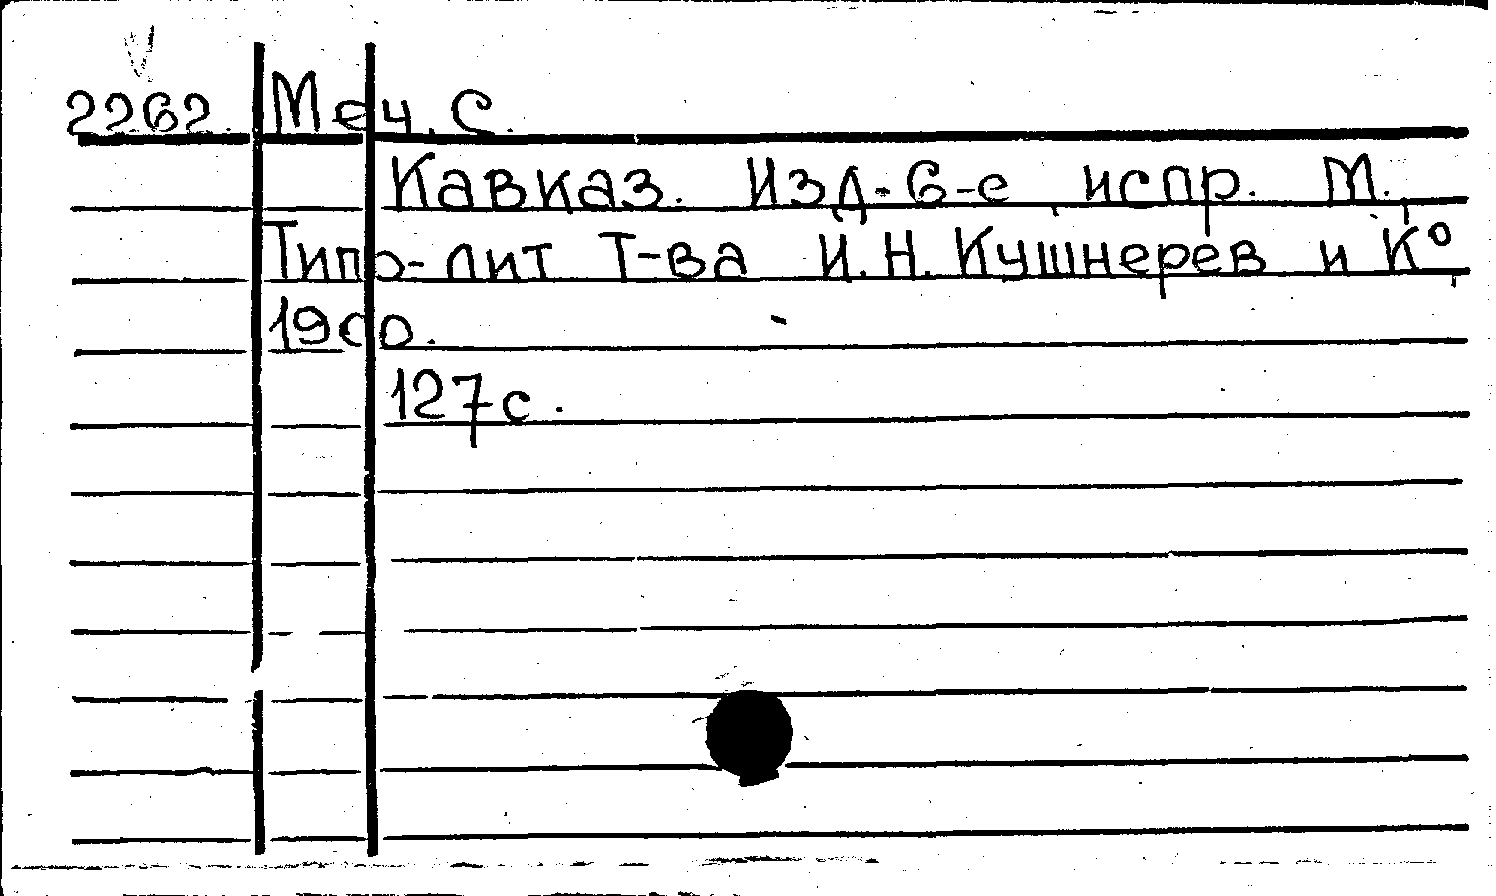 2262. Меч, С.
Кавказ. Изд-6-е, испр. М.,
Типо-лит Т-ва И.Н. Кушнерев и К°,
1900.
127с.